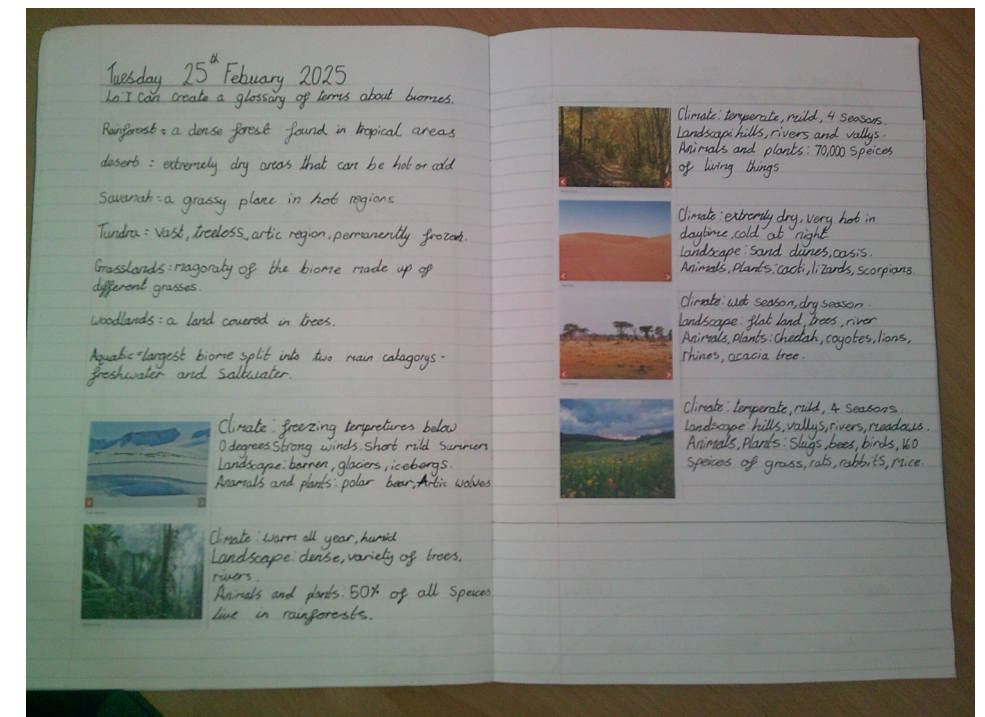 Tuesday 25th Febuary 2025
Lo: I Can create a glossary of terms about biomes.
Rainforest = a dense forest found in tropical areas
desert = extremely dry areas that can be hot or cold
Savanah = a grassy plane in hot regions
Tundra = Vast, treeless, artic region, permanently frozen.
Grasslands = magoraty of the biome made up of
different grasses.
Woodlands = a land covered in trees.
Aquatic = largest biome split into two main catagorys -
freshwater and Saltwater.
Climate: freezing tempretures below
0 degrees Strong winds. Short mild Summers
Landscape: barren, glaciers, icebergs.
Anamals and plants: polar bear, Artic wolves
Climate: warm all year, humid
Landscape: dense, variety of trees,
rivers.
Animals and plants: 50% of all Speices
live in rainforests.
Climate: temperate, mild, 4 seasons.
Landscape: hills, rivers and vallys.
Animals and plants: 70,000 Speices
of living things
Climate: extremly dry, very hot in
daytime, cold at night
Landscape: Sand dunes, oasis.
Animals, Plants: cacti, lizards, scorpians.
Climate: wet season, dry season.
Landscape: flat land, trees, river
Animals, Plants: cheetah, coyotes, lions,
rhinos, acacia tree.
Climate: temperate, mild, 4 Seasons.
Landscape: hills, vallys, rivers, meadows.
Animals, Plants: Slugs, bees, birds, 160
Speices of grass, rats, rabbits, Mice.